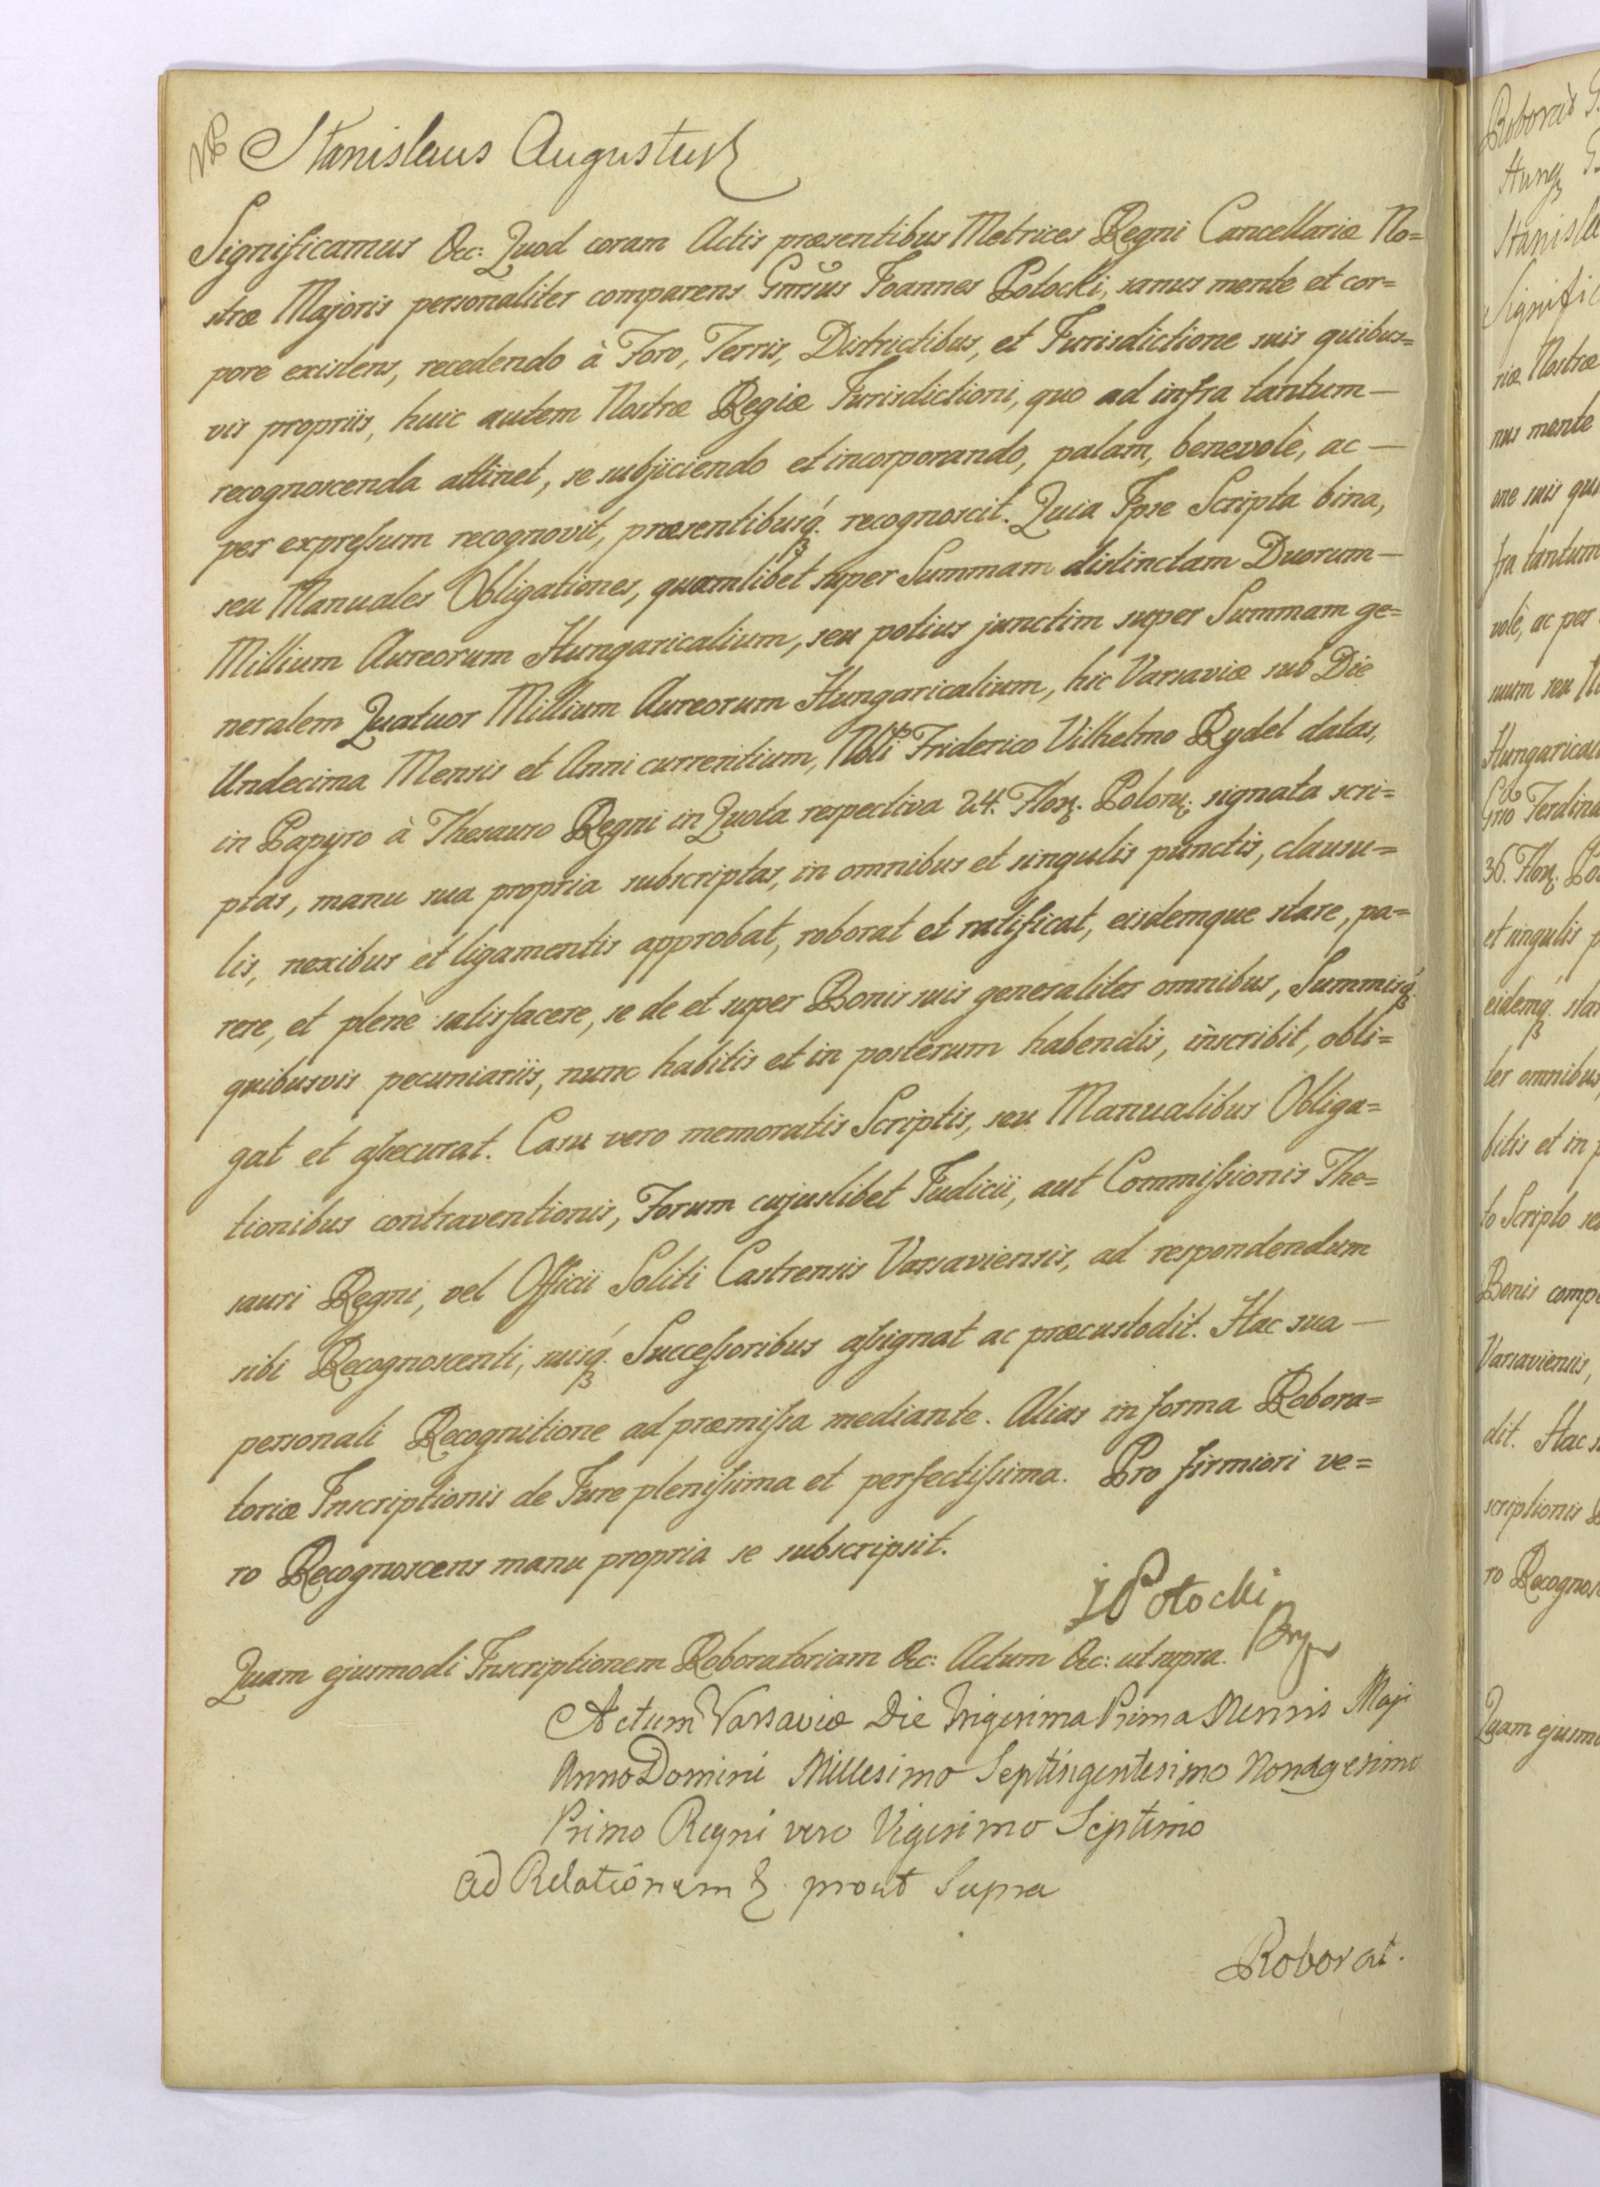 Stanislaus Augustus
Significamus &c: Quod coram Actis præsentibus Metrices Regni Cancellariæ No=
stræ Majoris personaliter comparens Gnrsus Joannes Potocki, sanus mente et cor=
pore existens, recedendo à Foro, Terris, Districtibus, et Jurisdictione suis quibus=
vis propriis, huic autem Nostræ Regiæ Jurisdictioni, quo ad infra tantum —
recognoscenda attinet, se subjiciendo et incorporando, palam, benevolè, ac —
per expressum recognovit, præsentibusq́. recognoscit. Quia Ipse Scripta bina,
seu Manuales Obligationes, quamlibet super Summam distinctam Duorum —
Millium Aureorum Hungaricalium, seu potius junctim super Summam ge=
neralem Quatuor Millium Aureorum Hungaricalium, hic Varsaviæ sub Die
Undecima Mensis et Anni currentium, Nobli Friderico Vilhelmo Rydel datas,
in Papyro à Thesauro Regni in Quota respectiva 24. Flor. Polon. signata scri=
ptas, manu sua propria subscriptas, in omnibus et singulis punctis, clausu=
lis, nexibus et ligamentis approbat, roborat et ratificat, eisdemque stare, pa=
rere, et plenè satisfacere, se de et super Bonis suis generaliter omnibus, Summisq́.
quibusvis pecuniariis, nunc habitis et in posterum habendis, inscribit, obli=
gat et assecurat. Casu vero memoratis Scriptis, seu Manualibus Obliga=
tionibus contraventionis, Forum cujuslibet Judicii, aut Commissionis The=
sauri Regni, vel Officii Soliti Castrensis Varsaviensis, ad respondendum
sibi Recognoscenti, suisq́. Successoribus assignat ac præcustodit. Hac sua —
personali Recognitione ad præmissa mediante. Alias in forma Robora=
toriæ Inscriptionis de Jure plenissima et perfectissima. Pro firmiori ve=
ro Recognoscens manu propria se subscripsit.
J Potocki
Quam ejusmodi Inscriptionem Roboratoriam &c: Actum &c: ut supra.
Actum Varsaviæ Die Trigesima Prima Mensis Maji
Anno Domini Millesimo Septingentesimo Nonagesimo
Primo Regni vero Vigesimo Septimo
ad Relationem & prout Supra
Roborat.
Roborat
Hung
Stanisla
Signific
riæ Nostræ
nus mente
one suis qui
fra tantum
volè, ac per
suum seu
Hungarical
Gno Ferdina
36. Flor. Po
et singulis p
eidemq́. star
ter omnibus,
bitis et in p
to Scripto se
Bonis comp
Varsaviensis,
dit. Hac s
scriptionis
ro Recognos
Quam ejusmo